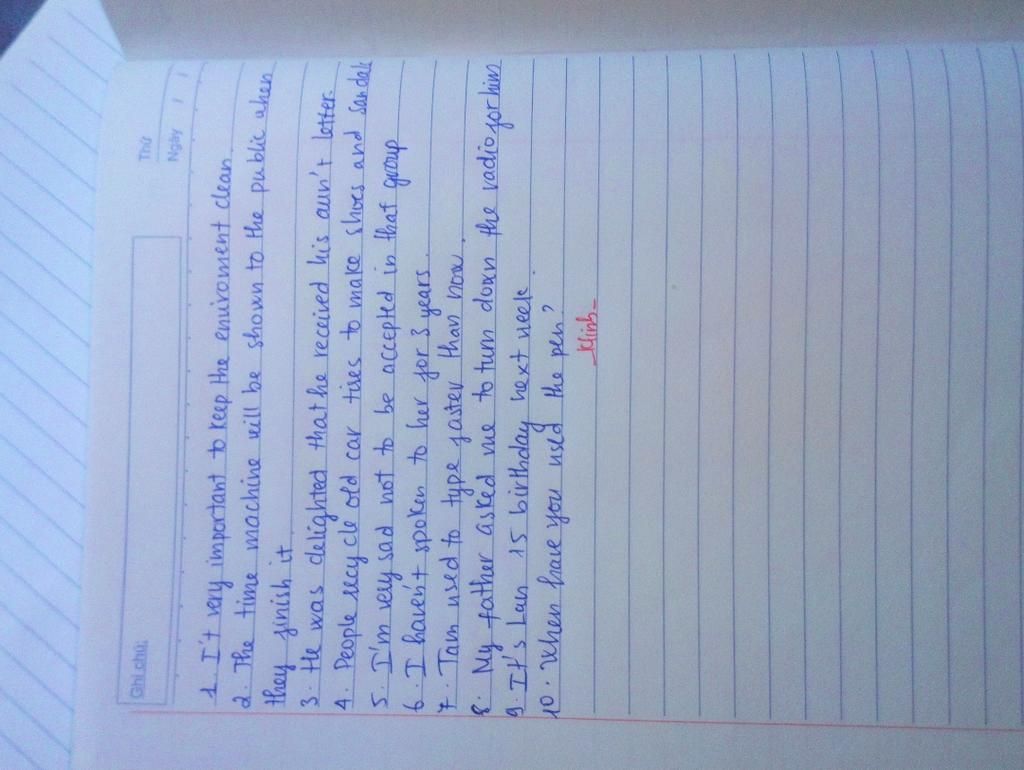 Ghi chú:
Thứ
Ngày / /
1. I't very important to keep the enviroment clean.
2. The time machine will be shown to the public when
they finish it.
3. He was delighted that he received his aun't letter.
4. People recycle old car tires to make shoes and sandals
5. I'm very sad not to be accepted in that group
6. I haven't spoken to her for 3 years.
7. Tam used to type faster than now.
8. My father asked me to turn down the radio for him
9. It's Lan 15 birthday next week.
10. When have you used the pen?